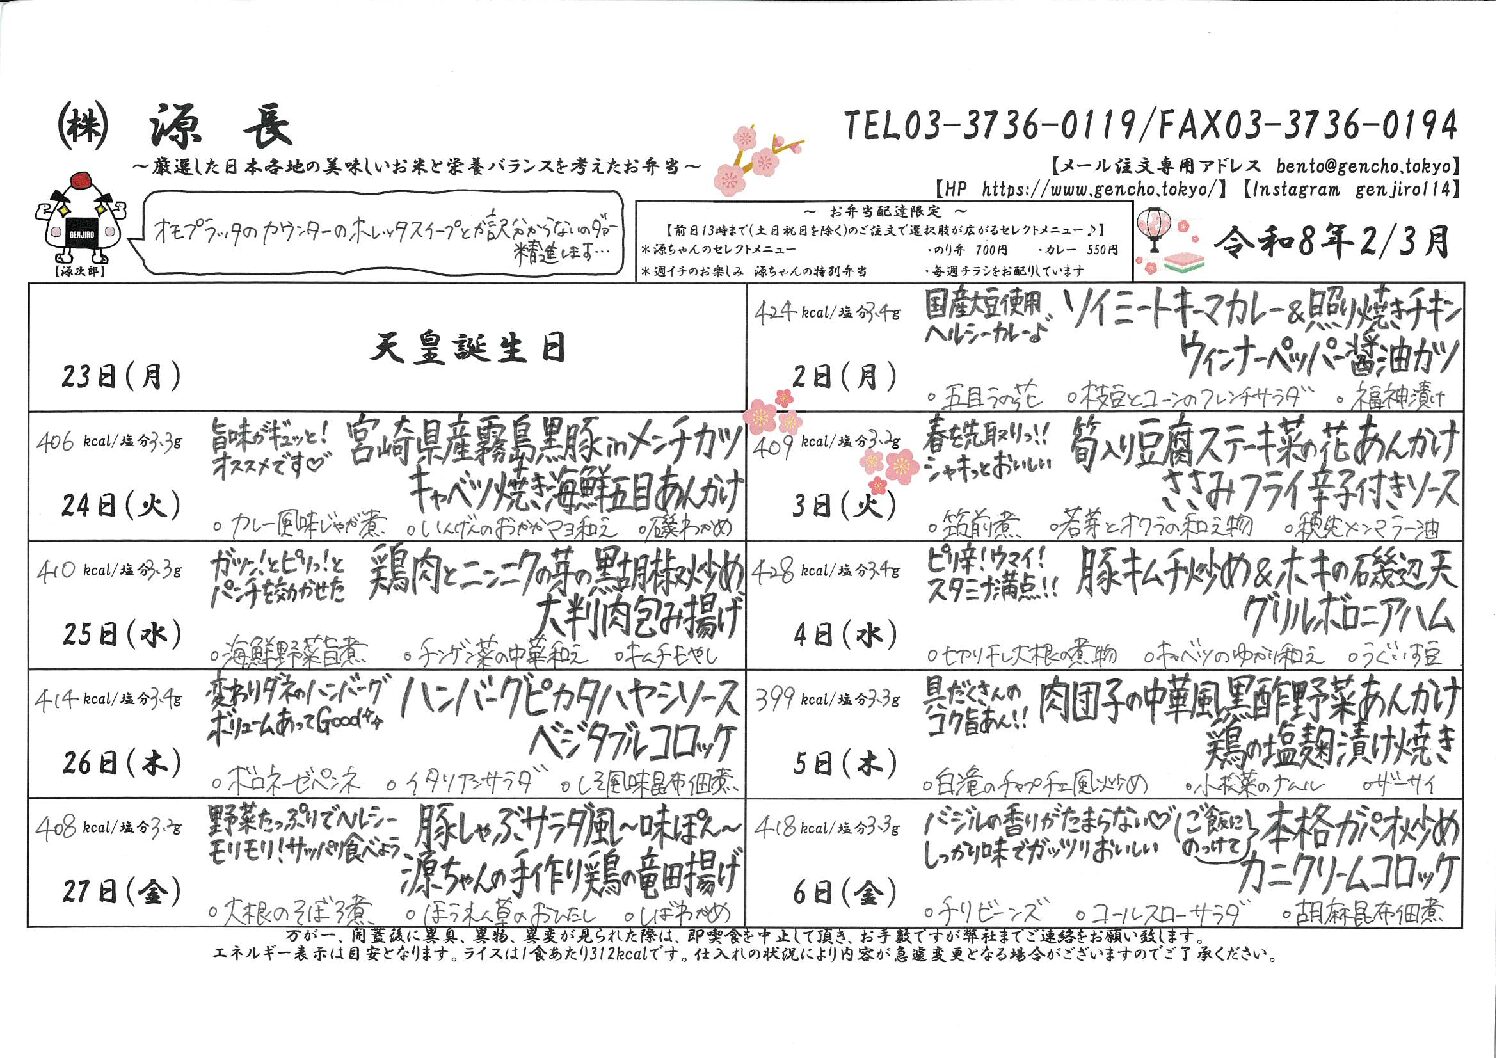 ㈱ 源長
～厳選した日本各地の美味しいお米と栄養バランスを考えたお弁当～
TEL03-3736-0119/FAX03-3736-0194
【メール注文専用アドレス bento@gencho.tokyo】
【HP https://www.gencho.tokyo/】【Instagram genjiro114】
GENJIRO
【源次郎】
オモプラッタのカウンターのホレッタスイープとか訳分からないのダァー
精進します…
～ お弁当配達限定 ～
【前日13時まで(土日祝日を除く)のご注文で選択肢が広がるセレクトメニュー♪】
＊源ちゃんのセレクトメニュー ・のり弁 700円 ・カレー 550円
＊週イチのお楽しみ 源ちゃんの特別弁当 ・毎週チラシをお配りしています
令和8年2/3月
23日(月)
天皇誕生日
406 kcal/塩分3.3g
旨味がギュッと!
オススメです♡
宮崎県産霧島黒豚inメンチカツ
キャベツ焼き海鮮五目あんかけ
24日(火)
○カレー風味じゃが煮 ○いんげんのおかかマヨ和え ○磯わかめ
410 kcal/塩分3.3g
ガツン!とピリッ!と
パンチを効かせた
鶏肉とニンニクの芽の黒胡椒炒め
大判肉包み揚げ
25日(水)
○海鮮野菜旨煮 ○チンゲン菜の中華和え ○キムチもやし
414 kcal/塩分3.4g
変わりダネのハンバーグ
ボリュームあってGood
ハンバーグピカタハヤシソース
ベジタブルコロッケ
26日(木)
○ボロネーゼペンネ ○イタリアンサラダ ○しそ風味昆布佃煮
408 kcal/塩分3.2g
野菜たっぷりでヘルシー
モリモリ!サッパリ食べよう
豚しゃぶサラダ風～味ぽん～
源ちゃんの手作り鶏の竜田揚げ
27日(金)
○大根のそぼろ煮 ○ほうれん草のおひたし ○しばわかめ
424 kcal/塩分3.4g
国産大豆使用
ヘルシーカレー♪
ソイミートキーマカレー&照り焼きチキン
ウィンナーペッパー醤油ガツ
2日(月)
○五目うの花 ○枝豆とコーンのフレンチサラダ ○福神漬け
409 kcal/塩分3.2g
春を先取りっ!!
シャキっとおいしい
筍入り豆腐ステーキ菜の花あんかけ
ささみフライ辛子付きソース
3日(火)
○筑前煮 ○若芽とオクラの和え物 ○穂先メンマラー油
428 kcal/塩分3.4g
ピリ辛!ウマイ!
スタミナ満点!!
豚キムチ炒め&ホキの磯辺天
グリルボロニアハム
4日(水)
○切り干し大根の煮物 ○キャベツのゆかり和え ○うぐいす豆
399 kcal/塩分3.3g
具だくさんの
コク旨あん!!
肉団子の中華風黒酢野菜あんかけ
鶏の塩麹漬け焼き
5日(木)
○白滝のチャプチェ風炒め ○小松菜のナムル ○ザーサイ
418 kcal/塩分3.3g
バジルの香りがたまらない♡
しっかり味でガッツリおいしい
(ご飯にのっけて)
本格ガパオ炒め
カニクリームコロッケ
6日(金)
○チリビーンズ ○コールスローサラダ ○胡麻昆布佃煮
万が一、開蓋後に異臭、異物、異変が見られた際は、即喫食を中止して頂き、お手数ですが弊社までご連絡をお願い致します。
エネルギー表示は目安となります。ライスは1食あたり312kcalです。仕入れの状況により内容が急遽変更となる場合がございますのでご了承ください。